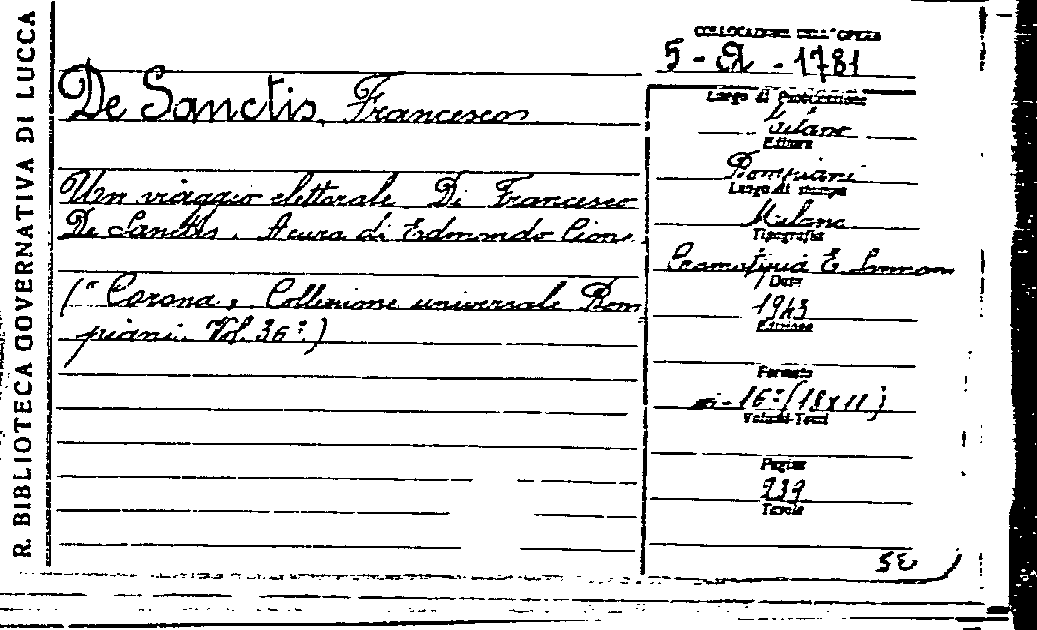 R. BIBLIOTECA GOVERNATIVA DI LUCCA
De Sanctis, Francesco
Un viaggio elettorale. Di Francesco
De Sanctis. A cura di Edmondo Cione.
(" Corona, Collezione universale Bom
piani. Vol. 36°.)
COLLOCAZIONE DELL'OPERA
5 - - 1781
Luogo di Pubblicazione
Milano
Editore
Bompiani
Luogo di stampa
Milano
Tipografia
E.
Data
1943
Edizione
Formato
in-16°(18x11)
Volumi-Tomi
Pagine
239
Tavole